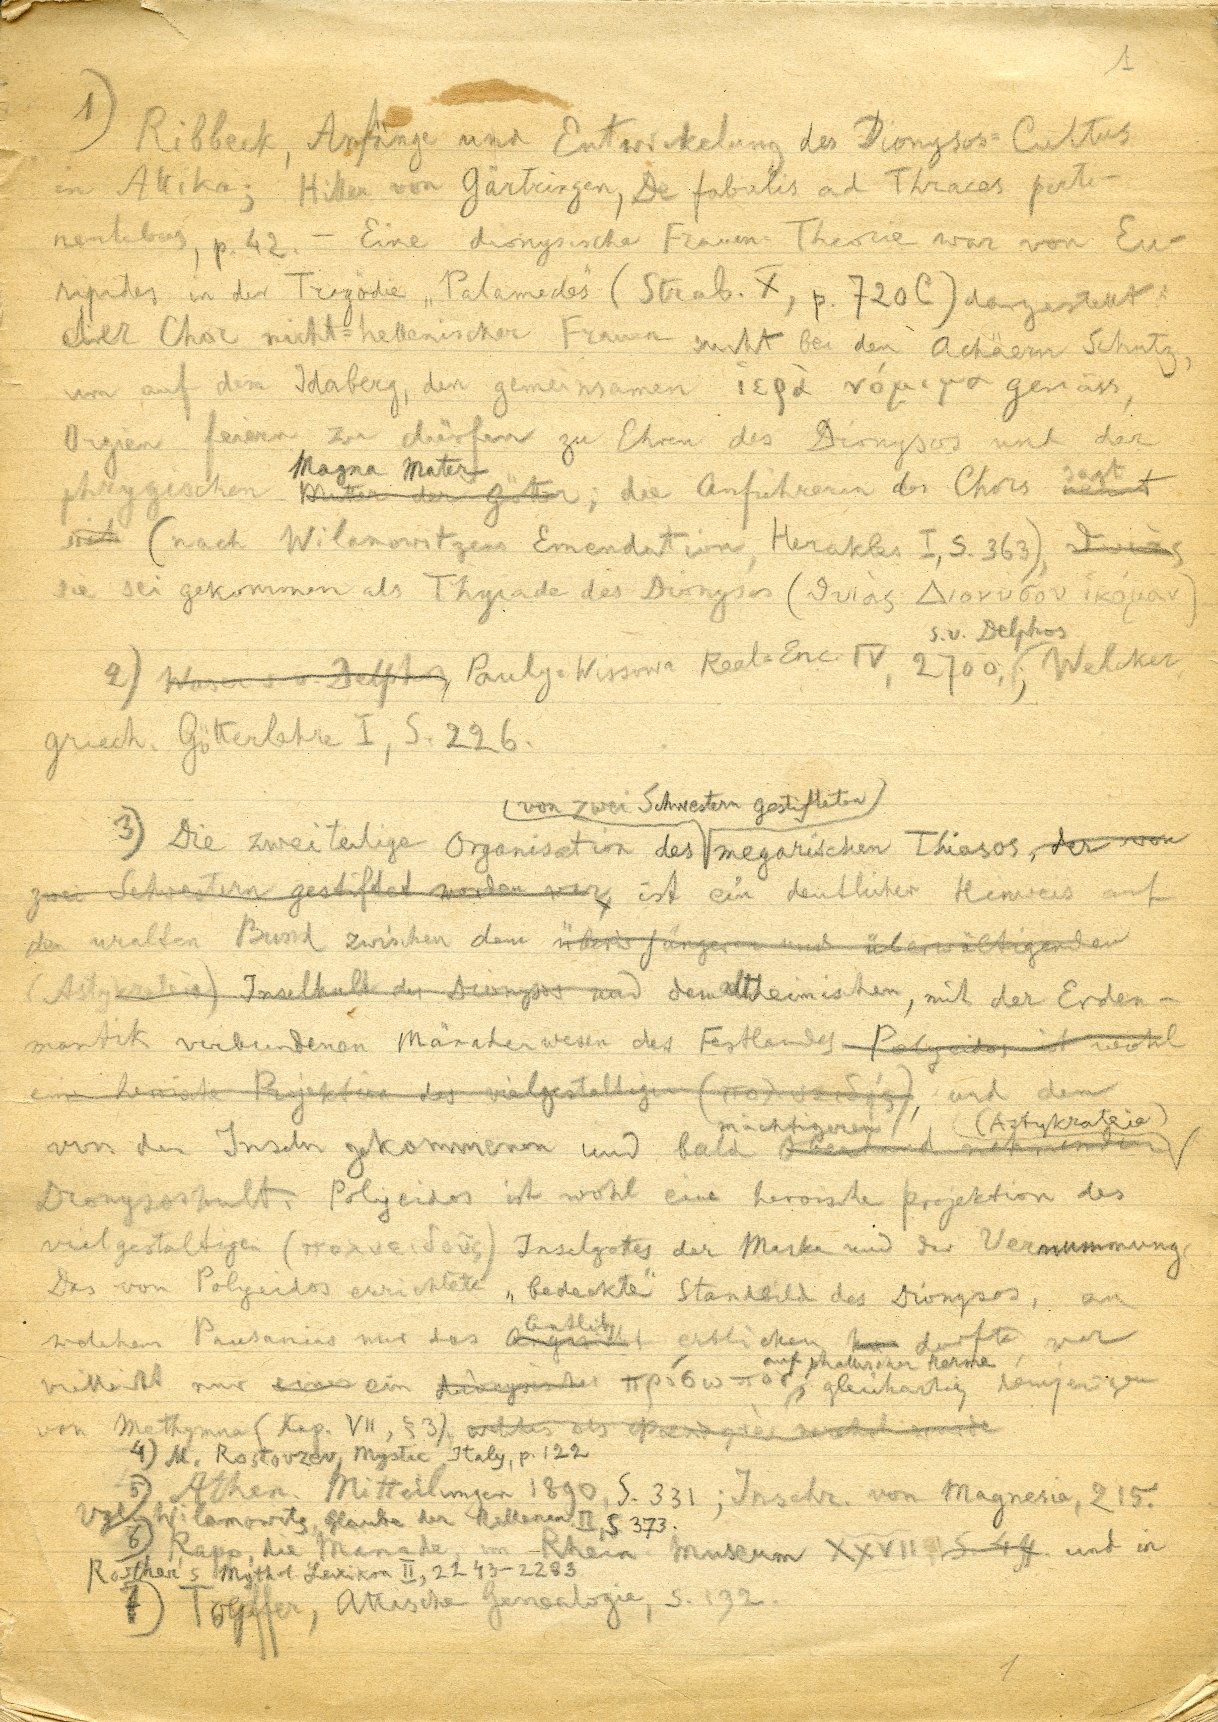 1
1) Ribbeck, Anfänge und Entwickelung des Dionysos=Cultus
in Attika; Hiller von Gärtringen, De fabulis ad Thraces perti-
nentibus, p. 42. – Eine dionysische Frauen=Theorie war von Eu-
ripides in der Tragödie „Palamedes" (Strab. X, p. 720C) dargestellt:
der Chor nicht=hellenischer Frauen sucht bei den Achäern Schutz,
um auf dem Idaberg, den gemeinsamen ἱερὰ νόμιμα gemäss,
Orgien feiern zu dürfen zu Ehren des Dionysos und der
Magna Mater sagt
phrygischen Mutter der Götter; die Anführerin des Chors nennt
mit (nach Wilamowitzens Emendation, Herakles I, S. 363), Θυιὰς
sie sei gekommen als Thyiade des Dionysos (Θυιὰς Διονύσου ἱκόμαν)
s.v. Delphos
2) Waser s.v. Delphos, Pauly=Wissowa Real=Enc. IV, 2700; Welcker,
griech. Götterlehre I, S. 226.
(von zwei Schwestern gestifteten)
3) Die zweiteilige Organisation des megarischen Thiasos, der von
zwei Schwestern gestiftet worden war, ist ein deutlicher Hinweis auf
den uralten Bund zwischen dem jüngeren und überwältigenden
(Astykrateia) Inselkult des Dionysos und dem altheimischen, mit der Erden-
mantik verbundenen Mänadenwesen des Festlandes Polyeidos ist wohl
eine heroische Projektion des vielgestaltigen (πολυειδής), und dem
mächtigeren, (Astykrateia)
von den Inseln gekommenen und bald überhand nehmenden
Dionysoskult. Polyeidos ist wohl eine heroische Projektion des
vielgestaltigen (πολυειδοῦς) Inselgottes der Maske und der Vermummung.
Das von Polyeidos errichtete „bedeckte" Standbild des Dionysos, an
Antlitz
welchem Pausanias nur das Angesicht erblicken durfte, war
auf phallischer Herme
vielleicht nur ein dionysisches πρόσωπον, gleichartig demjenigen
von Methymna (Kap. VII, § 3),
4) M. Rostovzev, Mystic Italy, p. 122
5) Athen. Mitteilungen 1890, S. 331; Inschr. von Magnesia, 215.
Vgl. Wilamowitz, Glaube der Hellenen II, S 373.
6) Rapp, die Mänade, im Rhein. Museum XXVII S. 1ff. und in
Roscher's Mythol. Lexikon II, 2243–2283
7) Töpffer, Attische Genealogie, S. 132.
1